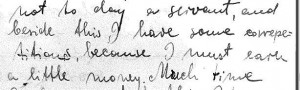 not to day a servant, and
beside this I have some correpe-
titions, because I must earn
a little money. Much time